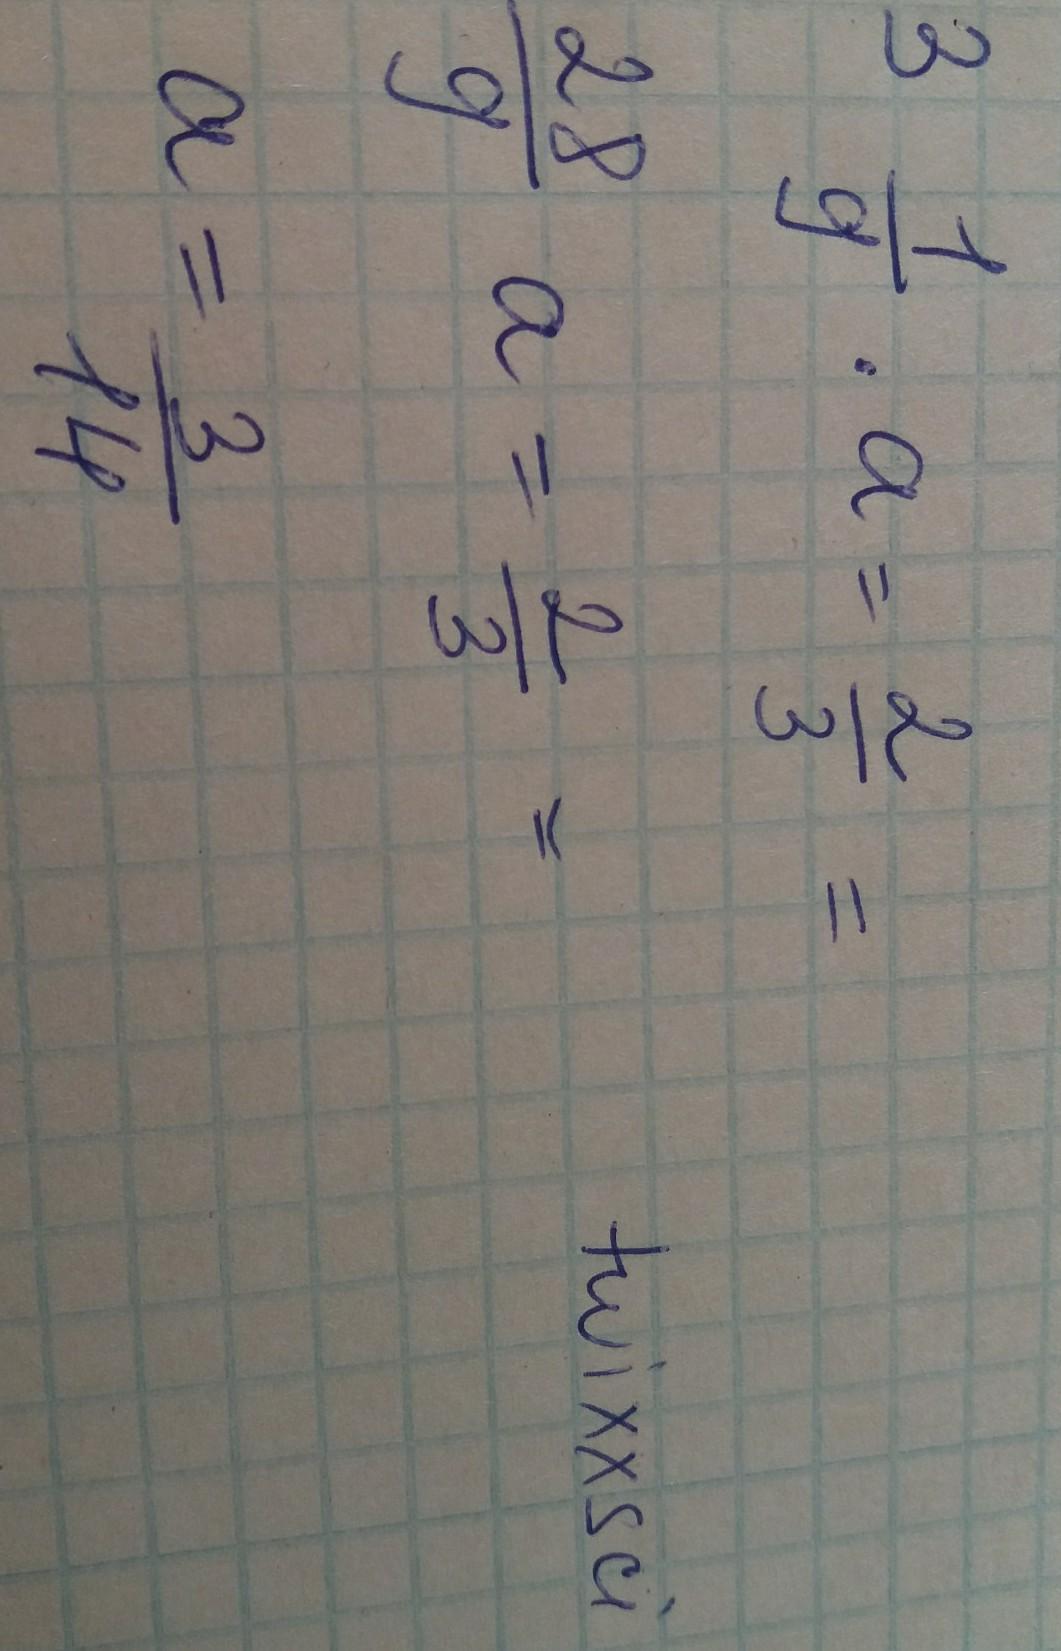 3 1/9 · a = 2/3 =
28/9 a = 2/3 =
a = 3/14
twixxsci